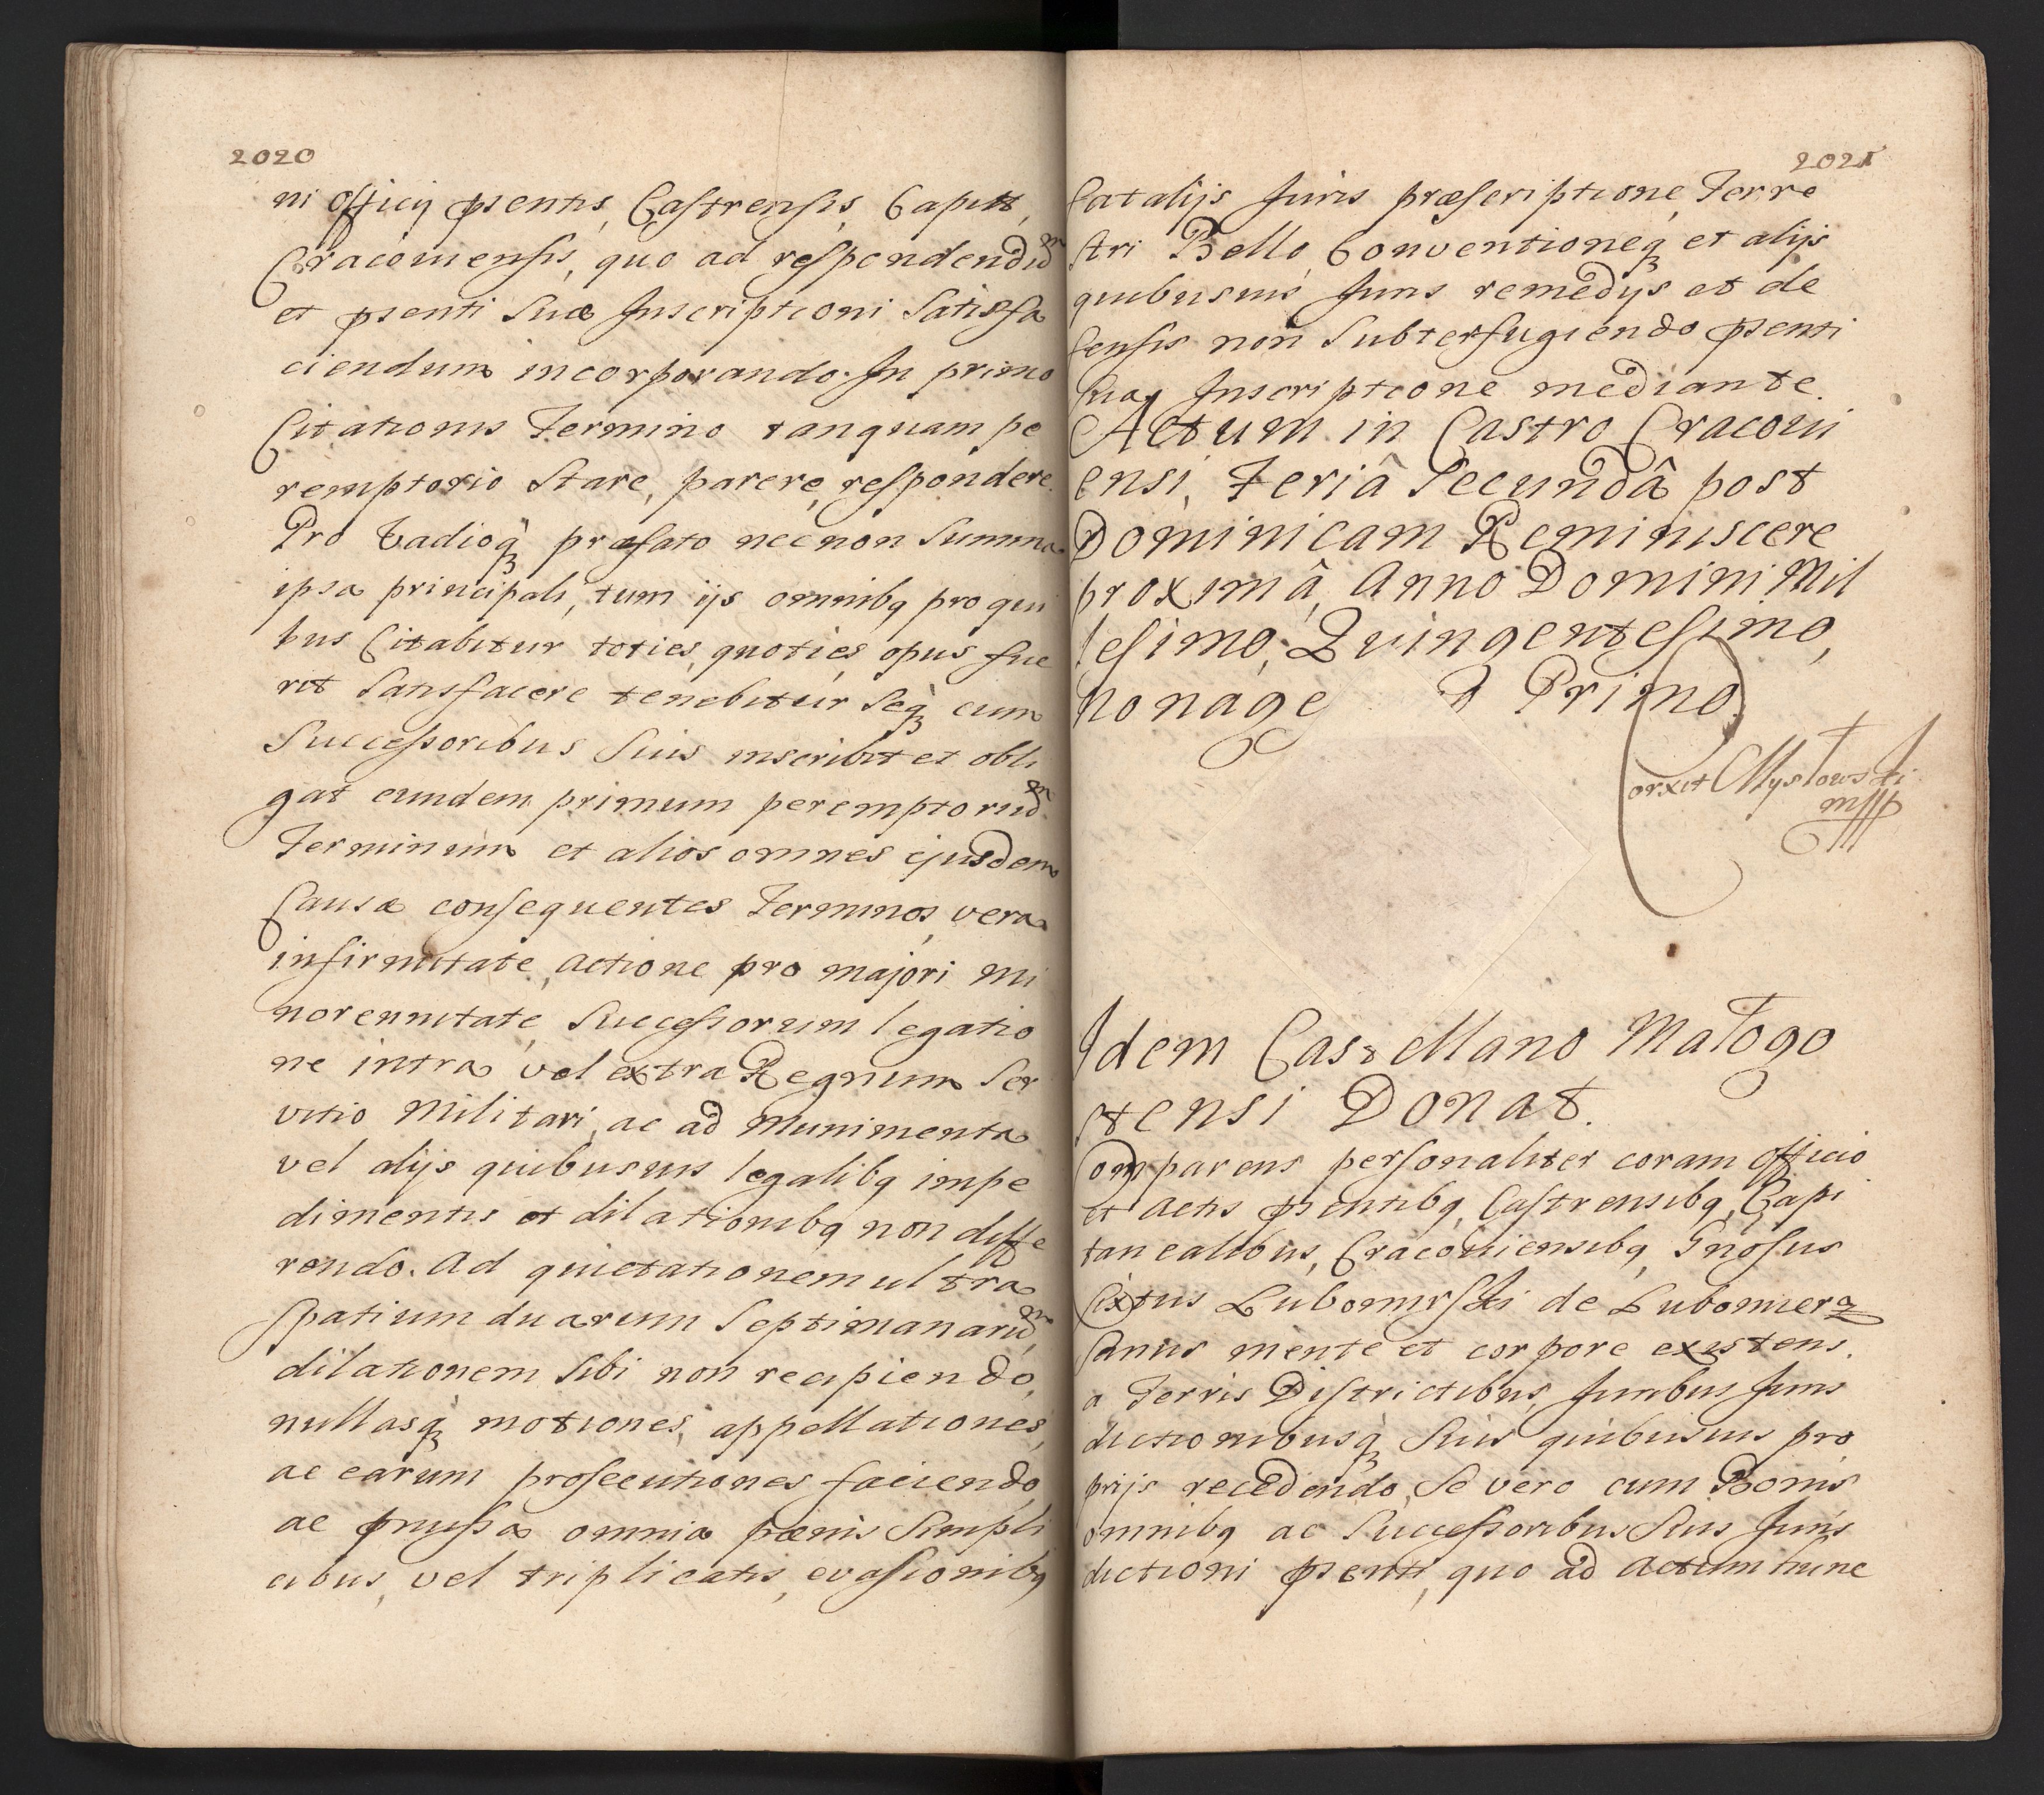 2020
ni Officij pñentis, Castrensis, Capitt,
Cracoviensis, quo ad respondendũm
et pñenti Suæ Inscriptioni Satisfa
ciendum incorporando. In primo
Citationis Termino tanquam pe
remptorio Stare, parere, respondere.
Pro Vadioq̀ præfato necnon Summa
ipsa principali, tum ijs omnibq pro qui
bus Citabitur toties, quoties opus fue
rit Satisfacere tenebitur Seq̀ cum
Successoribus Suis inscribit et obli
gat eundem primum peremptoriũm
Terminum et alios omnes ejusdem
Causæ consequentes Terminos, vera
infirmitate, actione pro majori mi
norennitate, Successorum legatio
ne intra, vel extra Regnum Ser
vitio Militari, ac ad Munimenta
vel alijs quibusvis legalibq impe
dimentis et dilationibq non diffe
rendo. Ad quietationem ultra
Spatium duarum Septimanarũm
dilationem Sibi non recipiendo,
nullasq̀ motiones, appellationes,
ac earum prosecutiones faciendo,
ac pmissa omnia pænis Simpli
cibus, vel triplicatis, evasionibq
2021
fatalijs Juris præscriptione, Terre
stri Bello, Conventioneq̀ et alijs
quibusvis Juris remedijs et de
fensis non Subterfugiendo pñenti
Sua Inscriptione mediante.
Actum in Castro Cracovi
ensi, Feriâ Secundâ post
Dominicam Reminiscere
proximâ, Anno Domini Mil
lesimo, Quingentesimo,
nonage Primo.
orxit Mysłowski
mpp
Idem Castellano Małogo
stensi Donat.
Comparens personaliter coram Officio
et Actis pñentibq, Castrensibq, Capi
tanealibus, Cracoviensibq, Gnosus
Sixtus Lubomirski de Lubomierz
Sanus mente et corpore existens.
a Terris Districtibus, Juribus Juris
dictionibusq̀ Suis quibusvis pro
prijs recedendo, Se vero cum Bonis
omnibq ac Successoribus Suis Juris
dictioni pñenti, quo ad Actum hunc